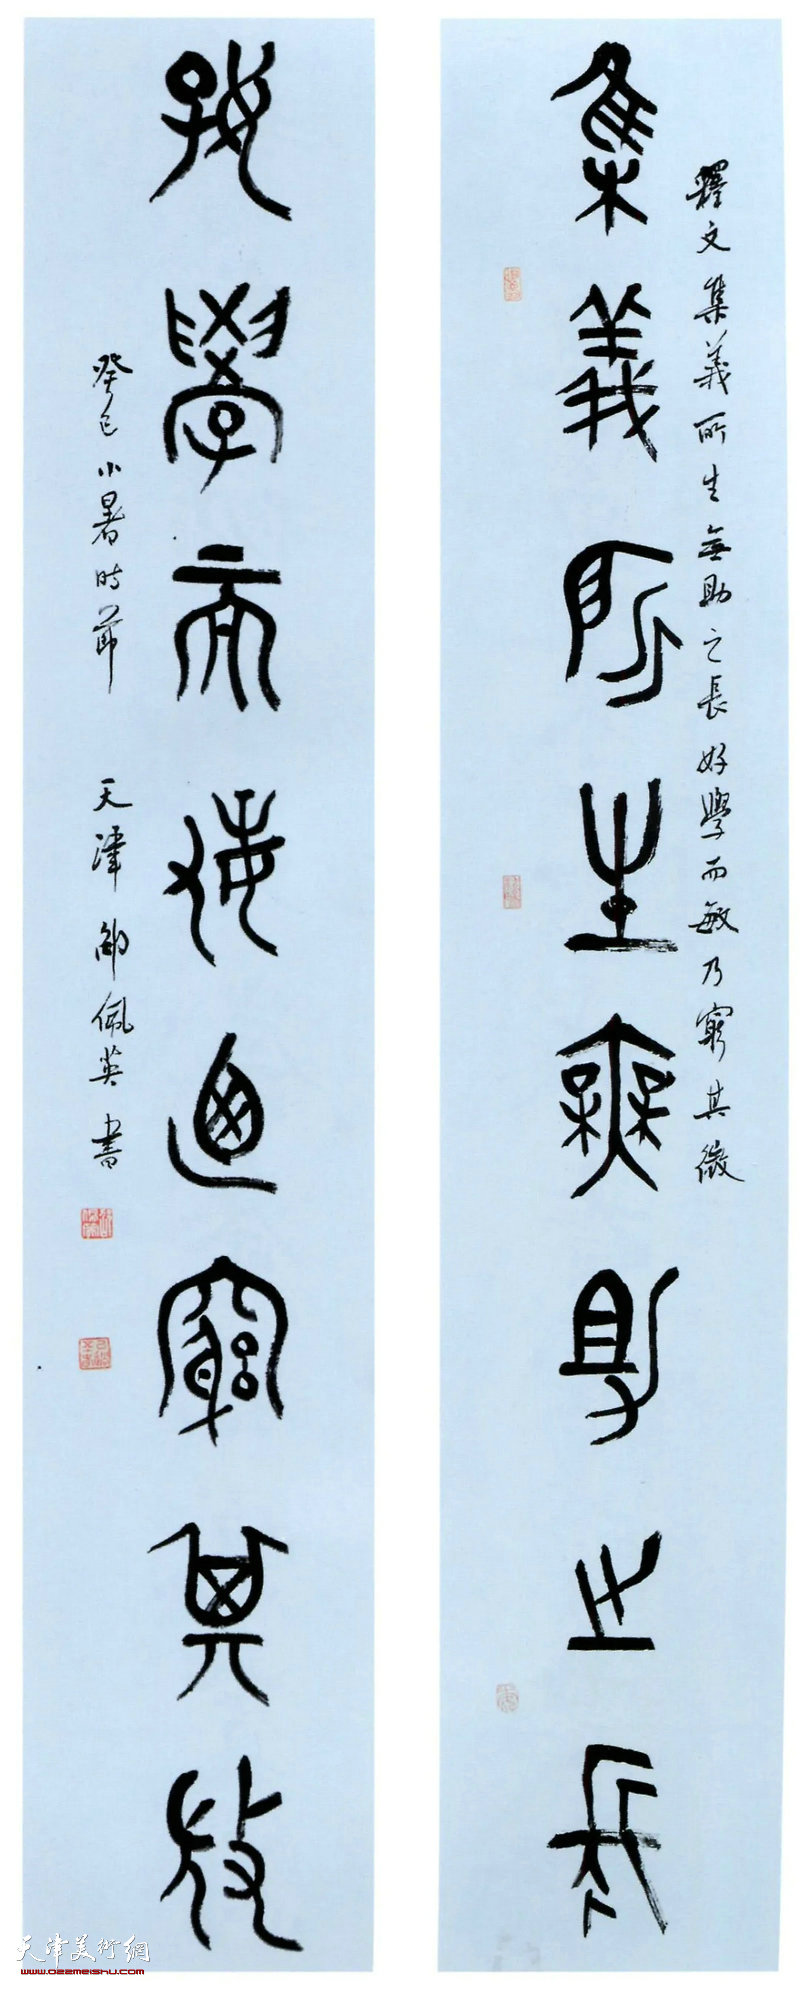 集義所生無助之長
釋文集義所生無助之長好學而敏乃窮其微
好學而敏乃窮其微
癸巳小暑時節 天津邵佩英書
天津美術網
www.022meishu.com